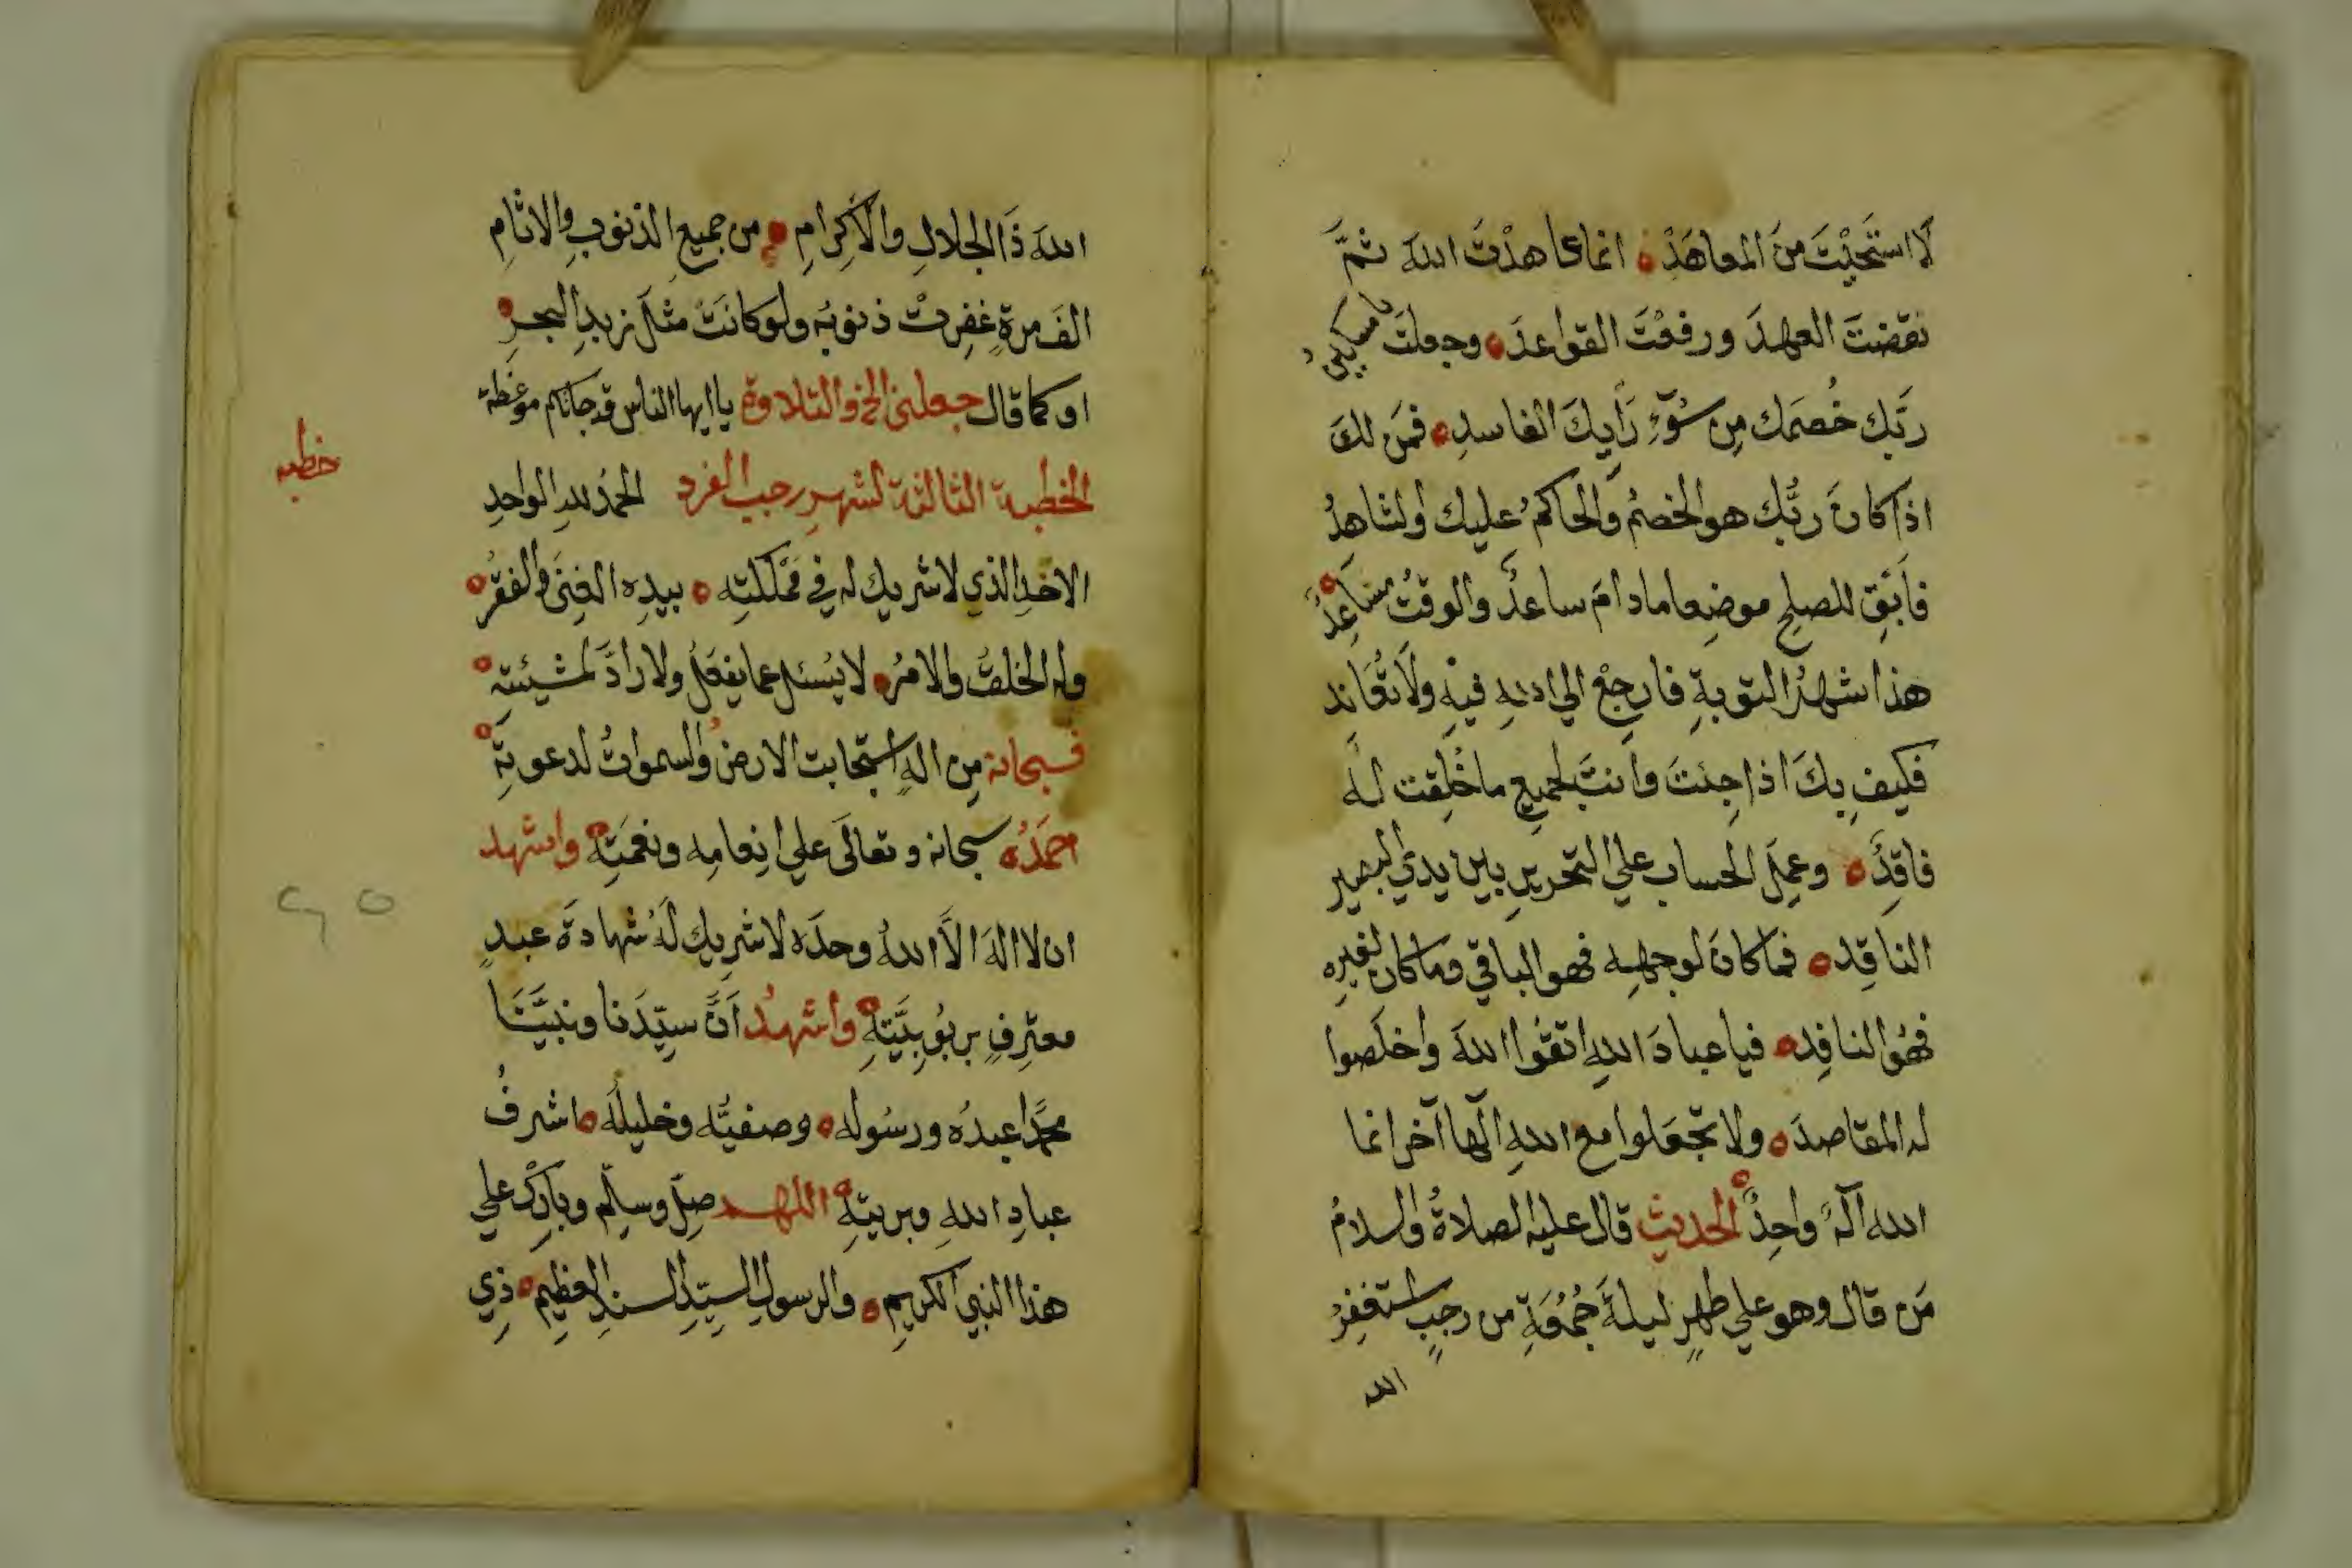 لَا استَحَيْتَ مِنَ المعاهَدْ انما عاهدْتَ اللهَ ثمَّ
نقضتَ العهدَ ورفعْتَ القواعدَ وجعلتَ يا مسكينُ
رَبّك خُصمَك مِن سُوٓءِ رَأيكَ الفاسدِ فمَن لكَ
اذا كانَ ربُّك هو الخصمُ والحاكمُ عليك والشاهدُ
فَابْقِ للصلحِ موضِعا مادامَ ساعدٌ والوقتُ مسَاعِدُ
هذا شهرُ التوبةِ فارجعْ الي اللهِ فيهِ ولَا تُعَاند
فكيف بِكَ اذا جِئتَ وانتَ لجميعِ ما خُلِقت له
فاقِدٌ وعمِلَ الحساب علي التحريرِ بين يديِ البصيرِ
الناقِد فماكانَ لوجهِه فهو الباقي وماكان لغيرِه
فهُو النافِد فيا عبادَ اللهِ اتقوا اللهَ واخلَصوا
له المقاصدَ ولا تجعَلوا مع اللهِ الٓها آخر انما
الله آلهٌ واحِدٌ الحديث قال عليه الصلاةُ والسلامُ
مَن قال وهو علي طهرٍ ليلةَ جُمُعَةِ من رجبٍ استغفِرُ
الله
اللهَ ذَا الجلالِ والاكرامِ من جميعِ الذنوبِ والاثامِ
الفَ مرةٍ غفِرتْ ذنوبُه ولو كانَتْ مثلَ زبدِ البحرِ
او كما قال جعلني الخ والتلاوة يا ايها الناس قد جاتكم موعَظة
خطبه
الخطبة الثالثة لشهرِ رجب الفرد الحمدُ للهِ الواحدِ
الاحدِ الذي لا شريك له في مَمْلكتِه بيدِه الغِنَى والفَقرُ
وله الخلقُ والامرُ لا يُسئل عما يفعَلُ ولا رادَّ لمشيئتِه
فسبحانه مِن الهٍ استجابت الارضُ والسمواتُ لدعوتِه
احمَدُه سبحانه وتعالَى علي انعامِه ونعمَتِه واشهد
ان لا الهَ الَّا اللهُ وحدَه لا شريك لَه شهادةَ عبدٍ
معترفٍ بربُوبِيَّتِه واشهدُ أنَّ سيِّدَنا ونبيَّنَا
محمَّدا عبدُه ورسُوله وصفيُّه وخليلُه اشرفُ
عبادِ اللهِ وبريتِه اللهم صلِّ وسلِّم وباركْ علي
هذا النبي الكريمِ والرسولِ السيِّدِ السندِ العظيمِ ذي